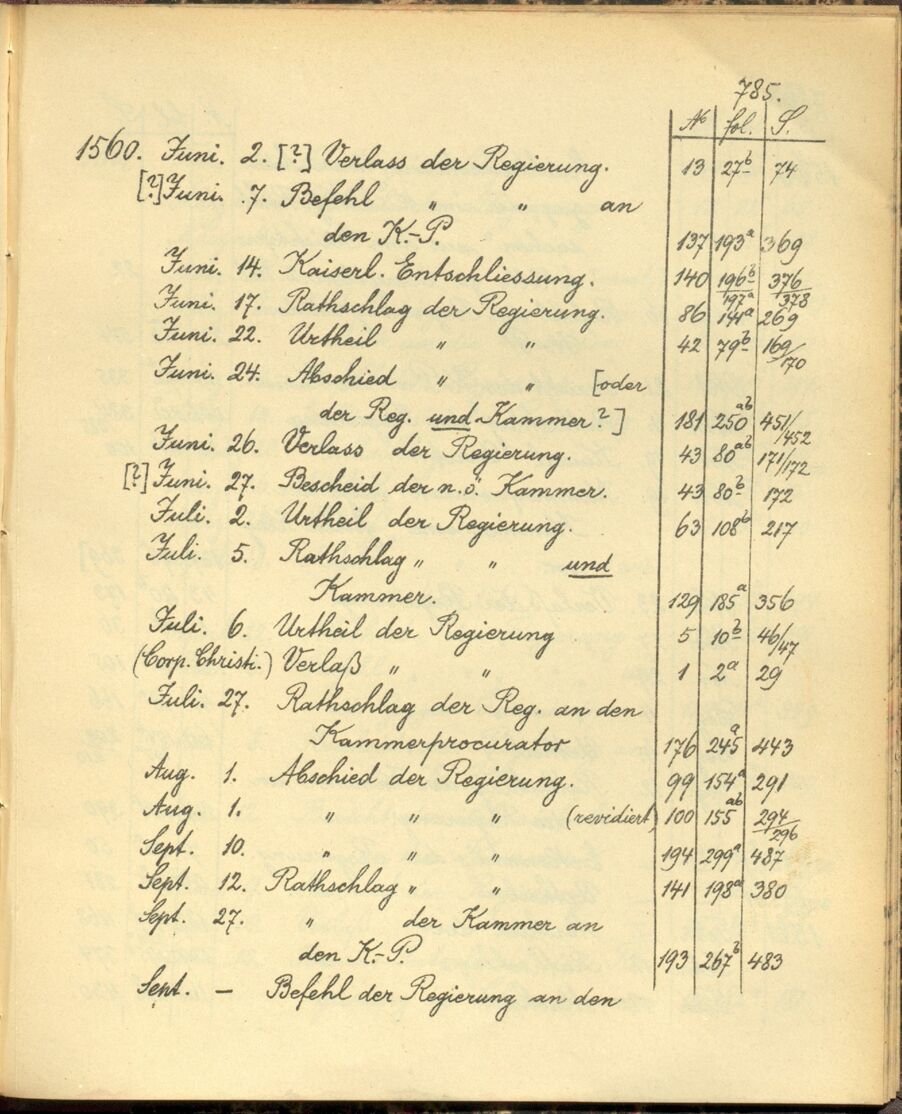 785.
No fol. S.
1560. Juni. 2. [?] Verlass der Regierung. 13 27b 74
[?] Juni. 7. Befehl " " an
den K.-P. 137 193a 369
Juni. 14. Kaiserl. Entschliessung. 140 196b/197a 376/378
Juni. 17. Rathschlag der Regierung. 86 141a 269
Juni. 22. Urtheil " " 42 79b 169/170
Juni. 24. Abschied " " [oder
der Reg. und Kammer?] 181 250ab 451/452
Juni. 26. Verlass der Regierung. 43 80ab 171/172
[?] Juni. 27. Bescheid der n.ö. Kammer. 43 80b 172
Juli. 2. Urtheil der Regierung. 63 108b 217
Juli. 5. Rathschlag " " und
Kammer. 129 185a 356
Juli. 6. Urtheil der Regierung 5 10b 46/47
(Corp. Christi.) Verlaß " " 1 2a 29
Juli. 27. Rathschlag der Reg. an den
Kammerprocurator 176 245a 443
Aug. 1. Abschied der Regierung. 99 154a 291
Aug. 1. " " " (revidiert) 100 155ab 294/296
Sept. 10. " " " 194 299a 487
Sept. 12. Rathschlag " " 141 198a 380
Sept. 27. " der Kammer an
den K.-P. 193 267b 483
Sept. — Befehl der Regierung an den